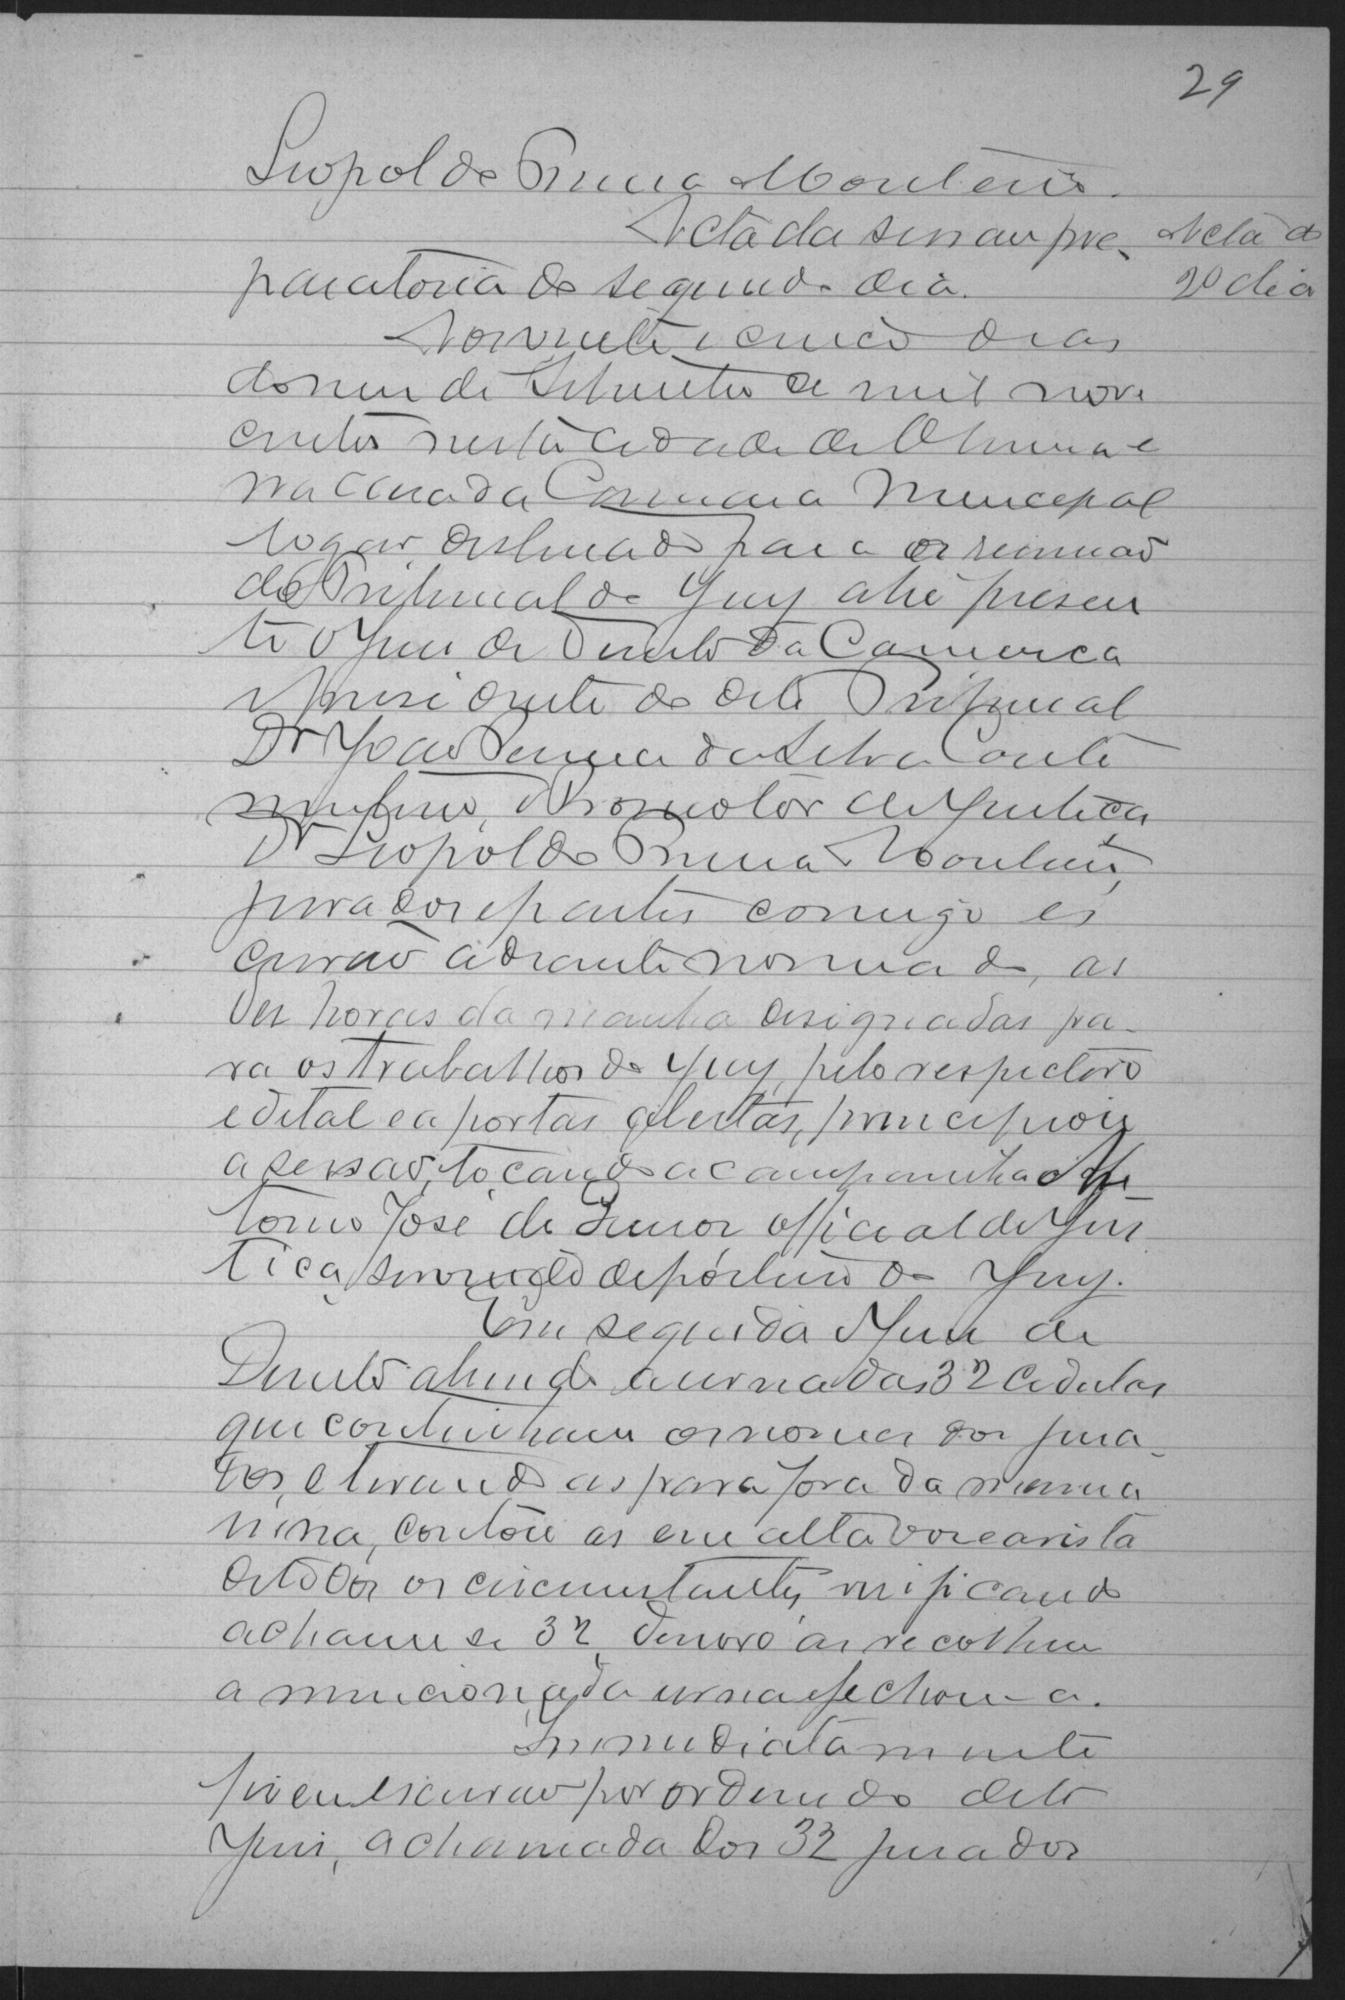 29
Leopoldo Penna Monteiro.
Acta da sessaõ pre-
Acta do
paratoria do segundo dia.
2º dia
Aos vinte e cinco dias
do mez de Setembro de mil nove
centos nesta cidade de
na casa da Camara Municipal
logar destinado para as reuniaõ
do Tribunal do Jury ahi presen
te o Juiz de Direito da Comarca
e presidente do dito Tribunal
Dr Joaõ Penna da Silva Conte
Promotor de Justiça
Dr Leopoldo Penna Monteiro,
jurados e partes comigo es
crivaõ adiante nomeado, as
dez horas da manha designadas pa-
ra os trabalhos do Jury, pelo respectivo
edital e a portas abertas, principiou
a sessaõ, tocando a campainha o An-
tonio José de official de Jus
tiça, servindo de porteiro do Jury.
Em seguida o Juiz de
Direito abrindo a urna das 32 cedulas
que continham os nomes dos jura-
dos, e tirando as para fora da mesma
urna, contou as em alta voz e a vista
de todos os circumstantes, verificando
acharem se 32, de novo as recolheu
a mencionada urna e fechou-a.
Immediatamente
fiz eu escrivaõ por ordem do dito
Juiz, a chamada dos 32 jurados